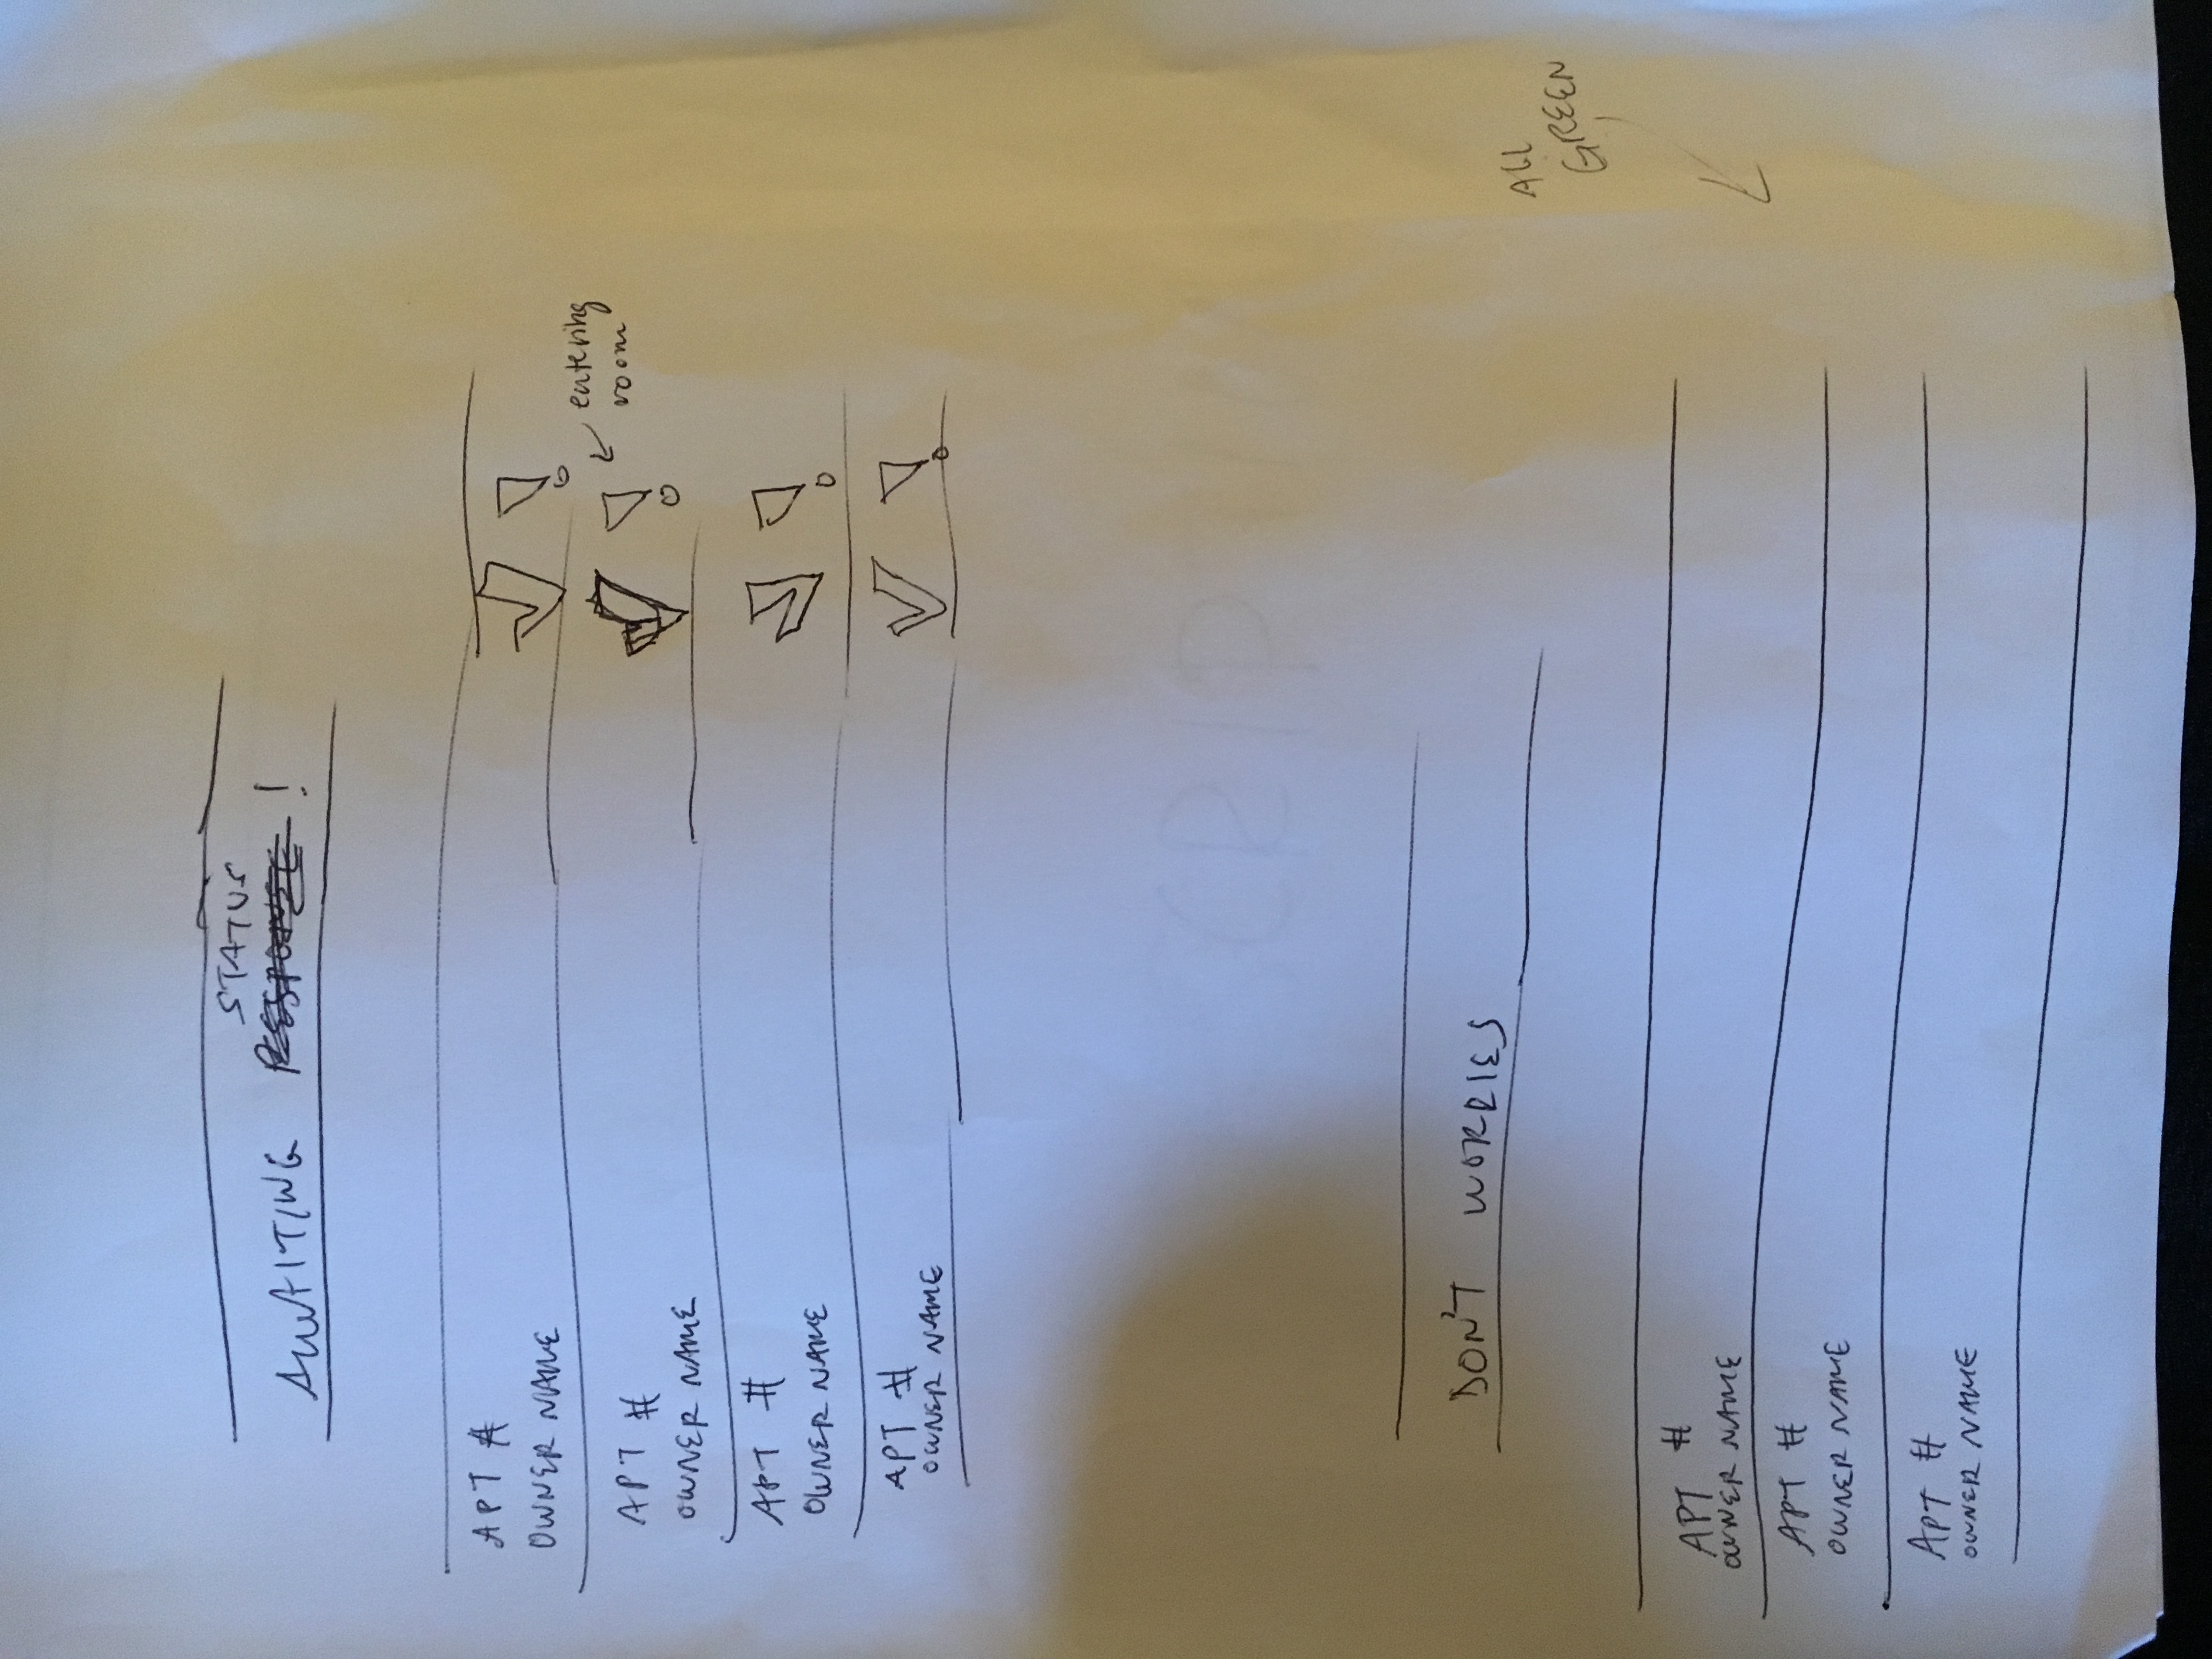 STATUS
AWAITING RESPONSE !
APT #
OWNER NAME
entering
room
APT #
OWNER NAME
APT #
OWNER NAME
APT #
OWNER NAME
CRIPTI
DON'T WORRIES
ALL
GREEN
APT #
OWNER NAME
APT #
OWNER NAME
APT #
OWNER NAME